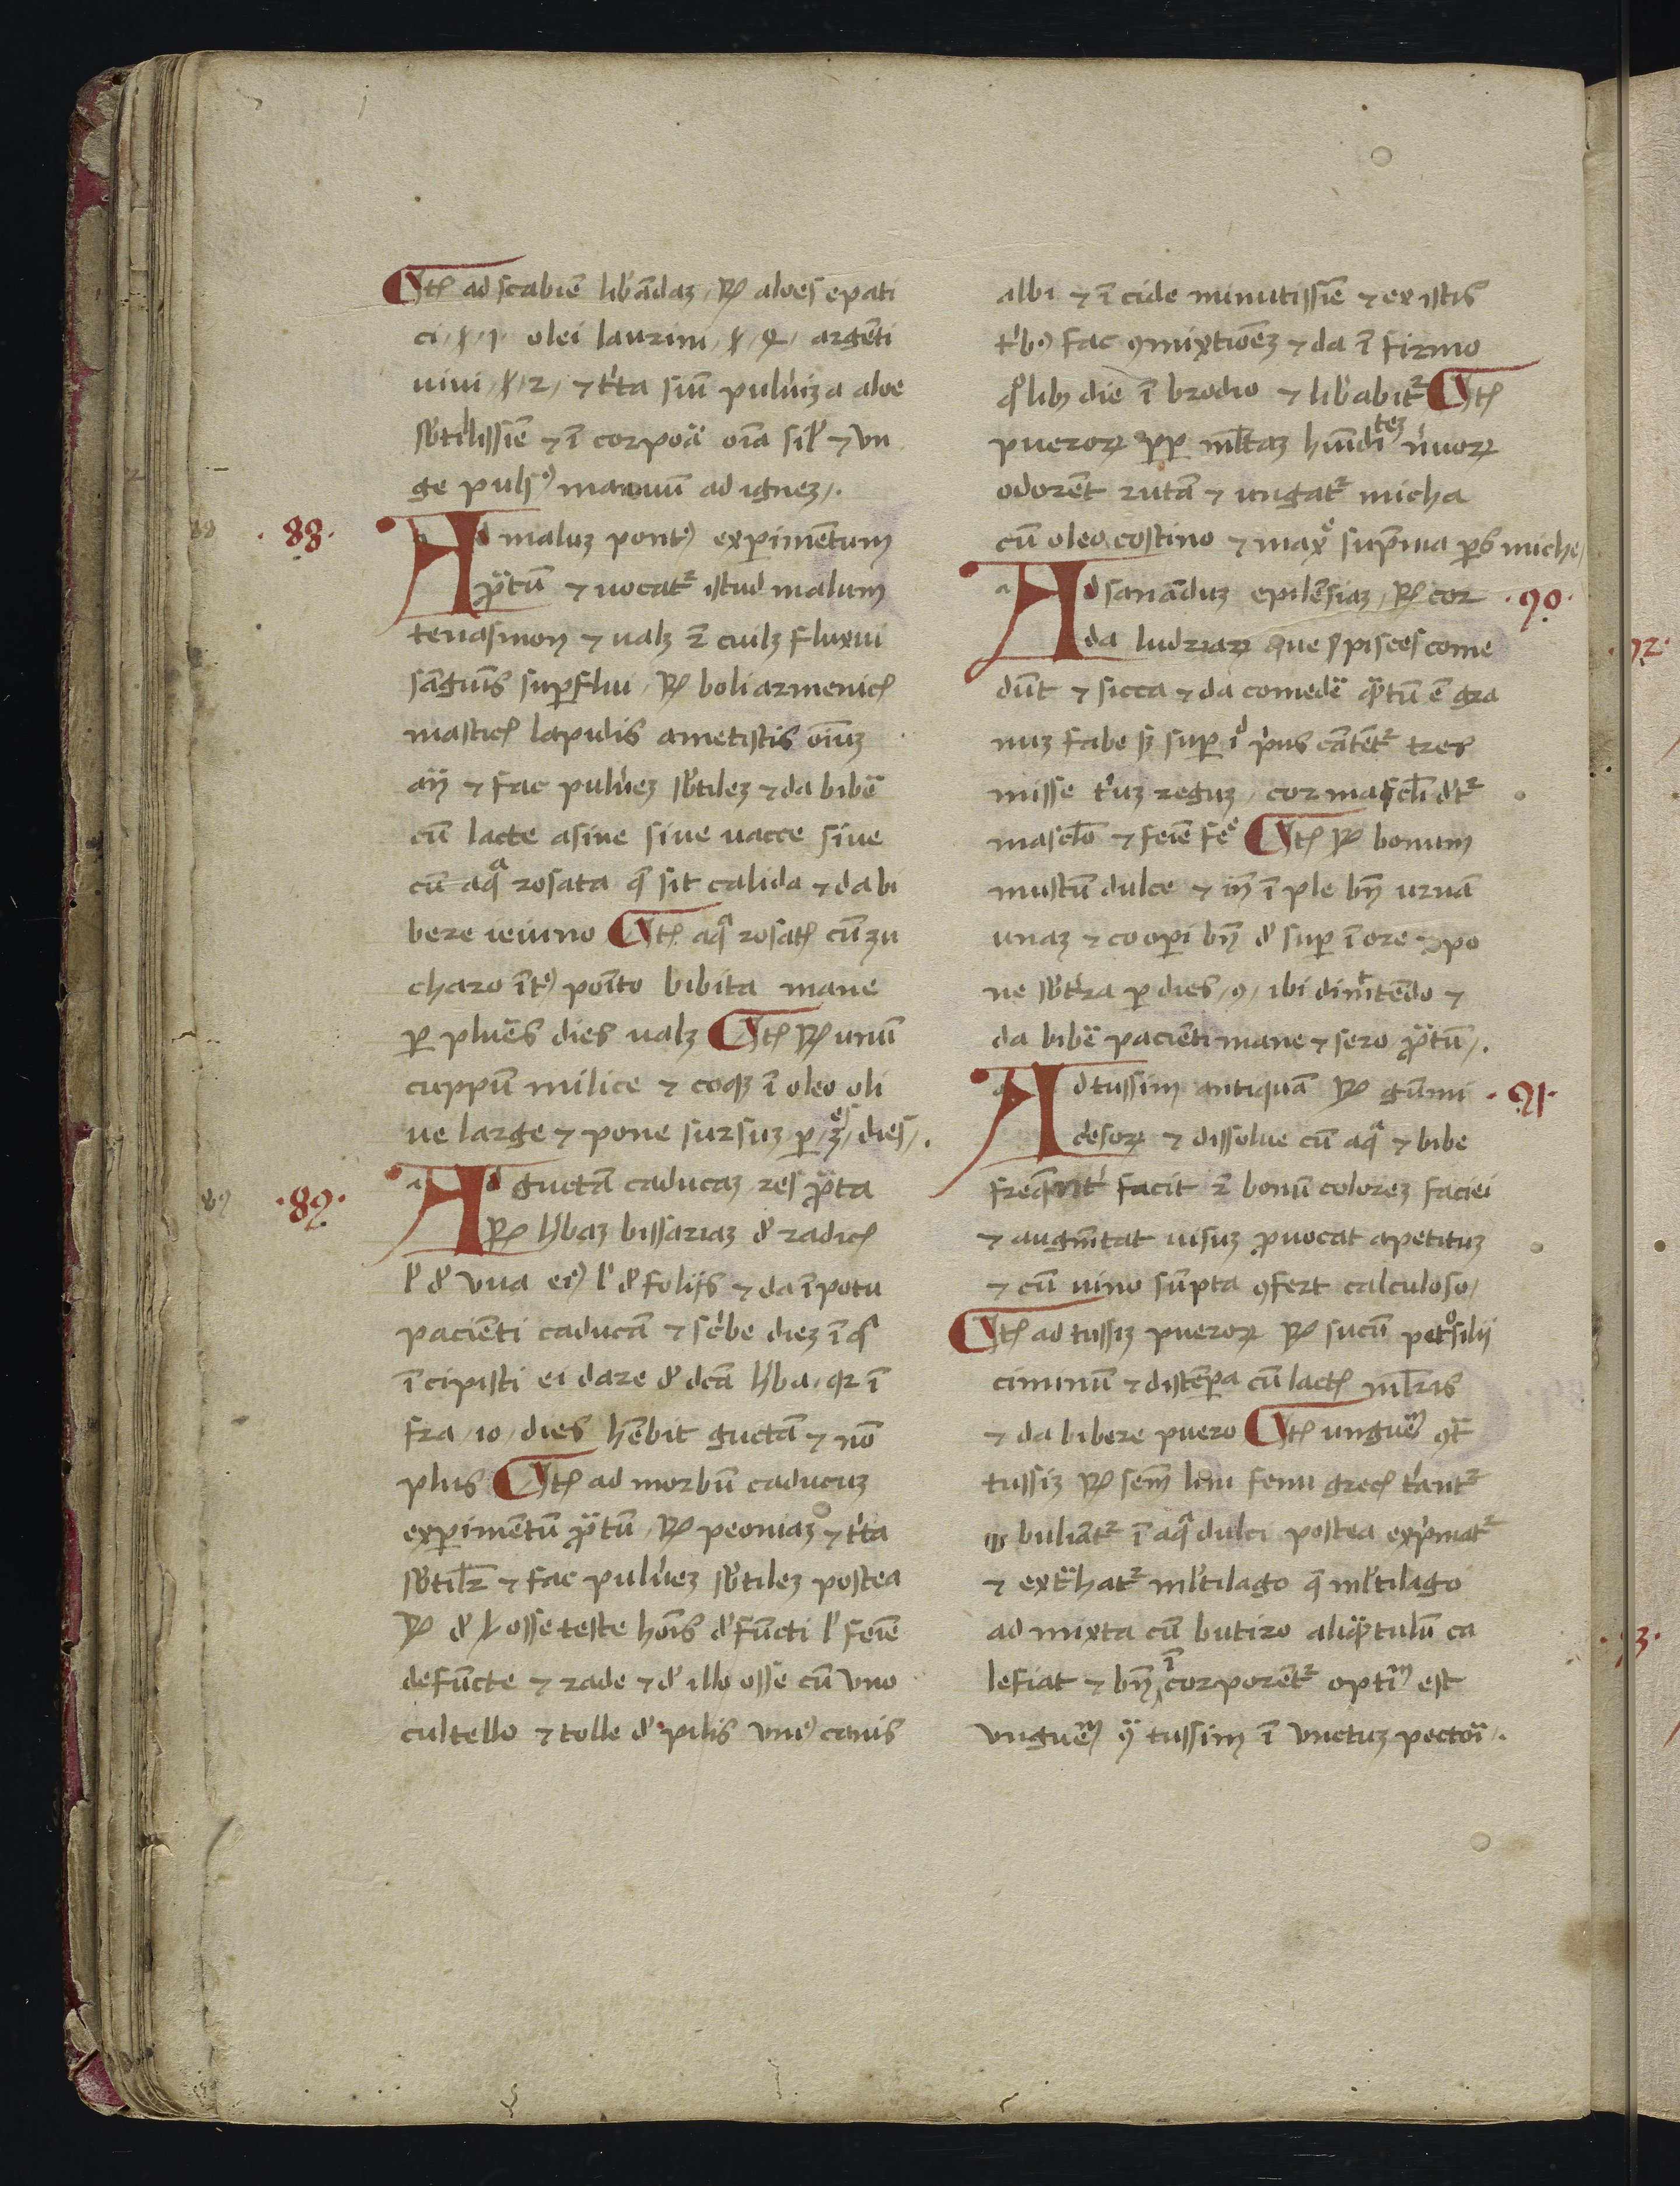 Itē ad scabiē lib'andaȝ, R͛ aloes epati
ci ʒ 1 olei laurini ʒ 4 argēti
uiui ʒ 2, ⁊ t'ta siul̄ pulu'iza aloe
sb'tilissīe ⁊ ī corpoa oīa sil' ⁊ un
ge puls' manuū ad igneȝ.
·88· Ad maluȝ pont' experimentum
p̄tū ⁊ uocat᷑ istud malum
tenasmon ⁊ ualȝ ⁊ cuilȝ fluxui
sāguīs sup̱flui, R͛ boli armenic̄
mastic̄ lapidis ametistis oīuȝ
añ ⁊ fac pulu'eȝ sb'tileȝ ⁊ da bibē
cū lacte asine siue uacce siue
cū aqᵃ rosata q̄ sit calida ⁊ da bi
bere ieiuno Itē aqᵃ rosat̄ cū zu
charo īt' poīto bibita mane
ꝑ plures dies ualȝ Itē R͛ unū
cuppū milice ⁊ coqȝ ī oleo oli
ue large ⁊ pone sursuȝ ꝑ 3 dies.
·89· Ad guctā caducaȝ res p̄ta
R͛ h'baȝ bissariaȝ d' radic̄
l' d' uua ei' l' d' foliis ⁊ da ī potu
paciēti caducā ⁊ sc'be dieȝ ī qᵃ
īcipisti ei dare d' dc̄a h'ba qꝛ ī
fra 10 dies hēbit guctā ⁊ nō
plus Itē ad morbū caducuȝ
exꝑimentū p̄tū, R͛ peoniaȝ ⁊ t'ta
sb'tilr̄ ⁊ fac pulu'eȝ sb'tileȝ postea
R͛ d' osse teste hoīs d'fūcti l' feīe
defūcte ⁊ rade ⁊ d' illo osse cū uno
cultello ⁊ tolle d' pilis uni' canis
albi ⁊ īcide minutissīe ⁊ ex istis
t'b' fac ꝯmixtiōeȝ ⁊ da īfirmo
qͦlibȝ die ī brodio ⁊ lib'abit᷑ Itē
pueroꝝ ꝓp̱ ml̄taȝ hūidiᵗᵉȝ n'uoꝝ
odorēt rutā ⁊ ungat᷑ micha
cū oleo costino ⁊ maxᵉ suprēma ꝑs miche,
Ad sanāduȝ epilēsiaȝ, R͛ cor ·90·
da ludriaꝝ que s' pisces come
dūt ⁊ sicca ⁊ da comedē qᵃtū ē gra
nuȝ fabe sȝ sup̱ iᵈ p'us cātēt᷑ tres
misse t'uȝ reguȝ, cor mascl̄i d't᷑
mascl̄o ⁊ feīe feᵉ Itē R͛ bonum
mustū dulce ⁊ īn īple bn̄ urnā
unaȝ ⁊ cooꝑi bn̄ d' sup̱ ī ore ⁊ po
ne sb't'ra ꝑ dies 9 ibi dimīttēdo ⁊
da bibē paciēti mane ⁊ sero p̄tū.
Ad tussim antiquā R͛ gūmi ·91·
cesoꝝ ⁊ dissolue cū aqᵃ ⁊ bibe
freq̄nt' facit ⁊ bonū coloreȝ faciei
⁊ augm̄tat uisuȝ ꝓuocat apetituȝ
⁊ cū uino sūpta ꝯfert calculoso,
Itē ad tussiȝ pueroꝝ R͛ sucū petͦsilii
ciminū ⁊ distēꝑa cū lact̄ ml̄ris
⁊ da bibere puero Itē unguē' ꝯt̄
tussiȝ R͛ sem̄ lini fenu grec̄ t'ant᷑
buliāt᷑ ī aqᵃ dulci postea exp'mat᷑
⁊ extᵃhat᷑ ml'tilago q̄ ml'tilago
admixta cū butiro aliqᵃtulū ca
lefiat ⁊ bn̄ īcorporēt᷑ optīm est
unguē' ꝯᵃ tussim ī unctuȝ pectoī.